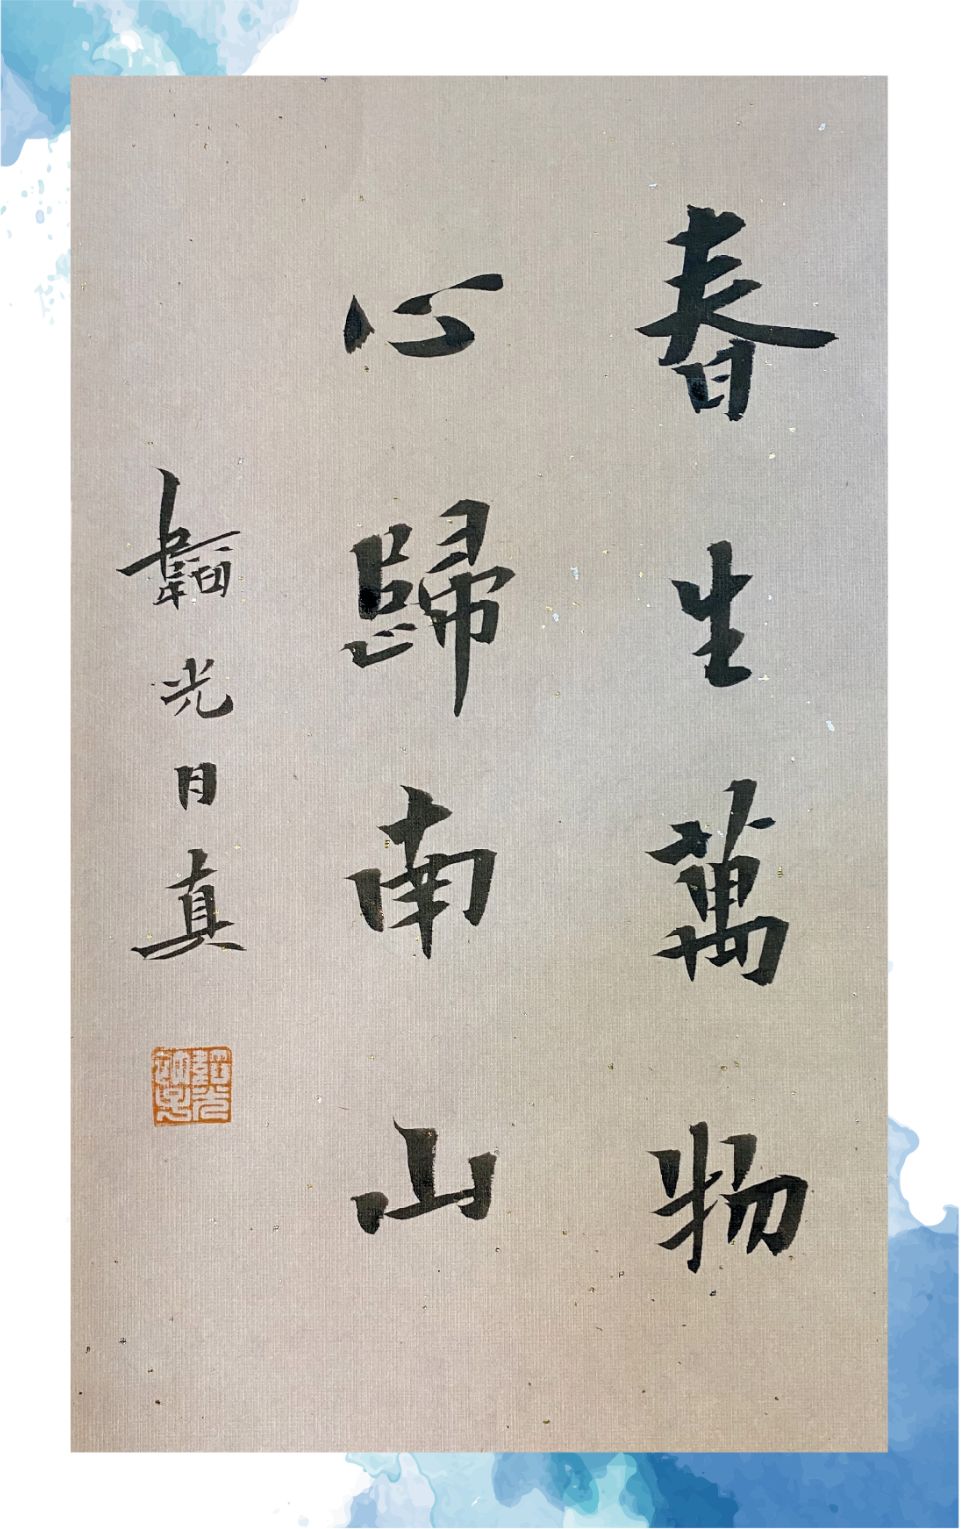 春生萬物
心歸南山
韜光日真